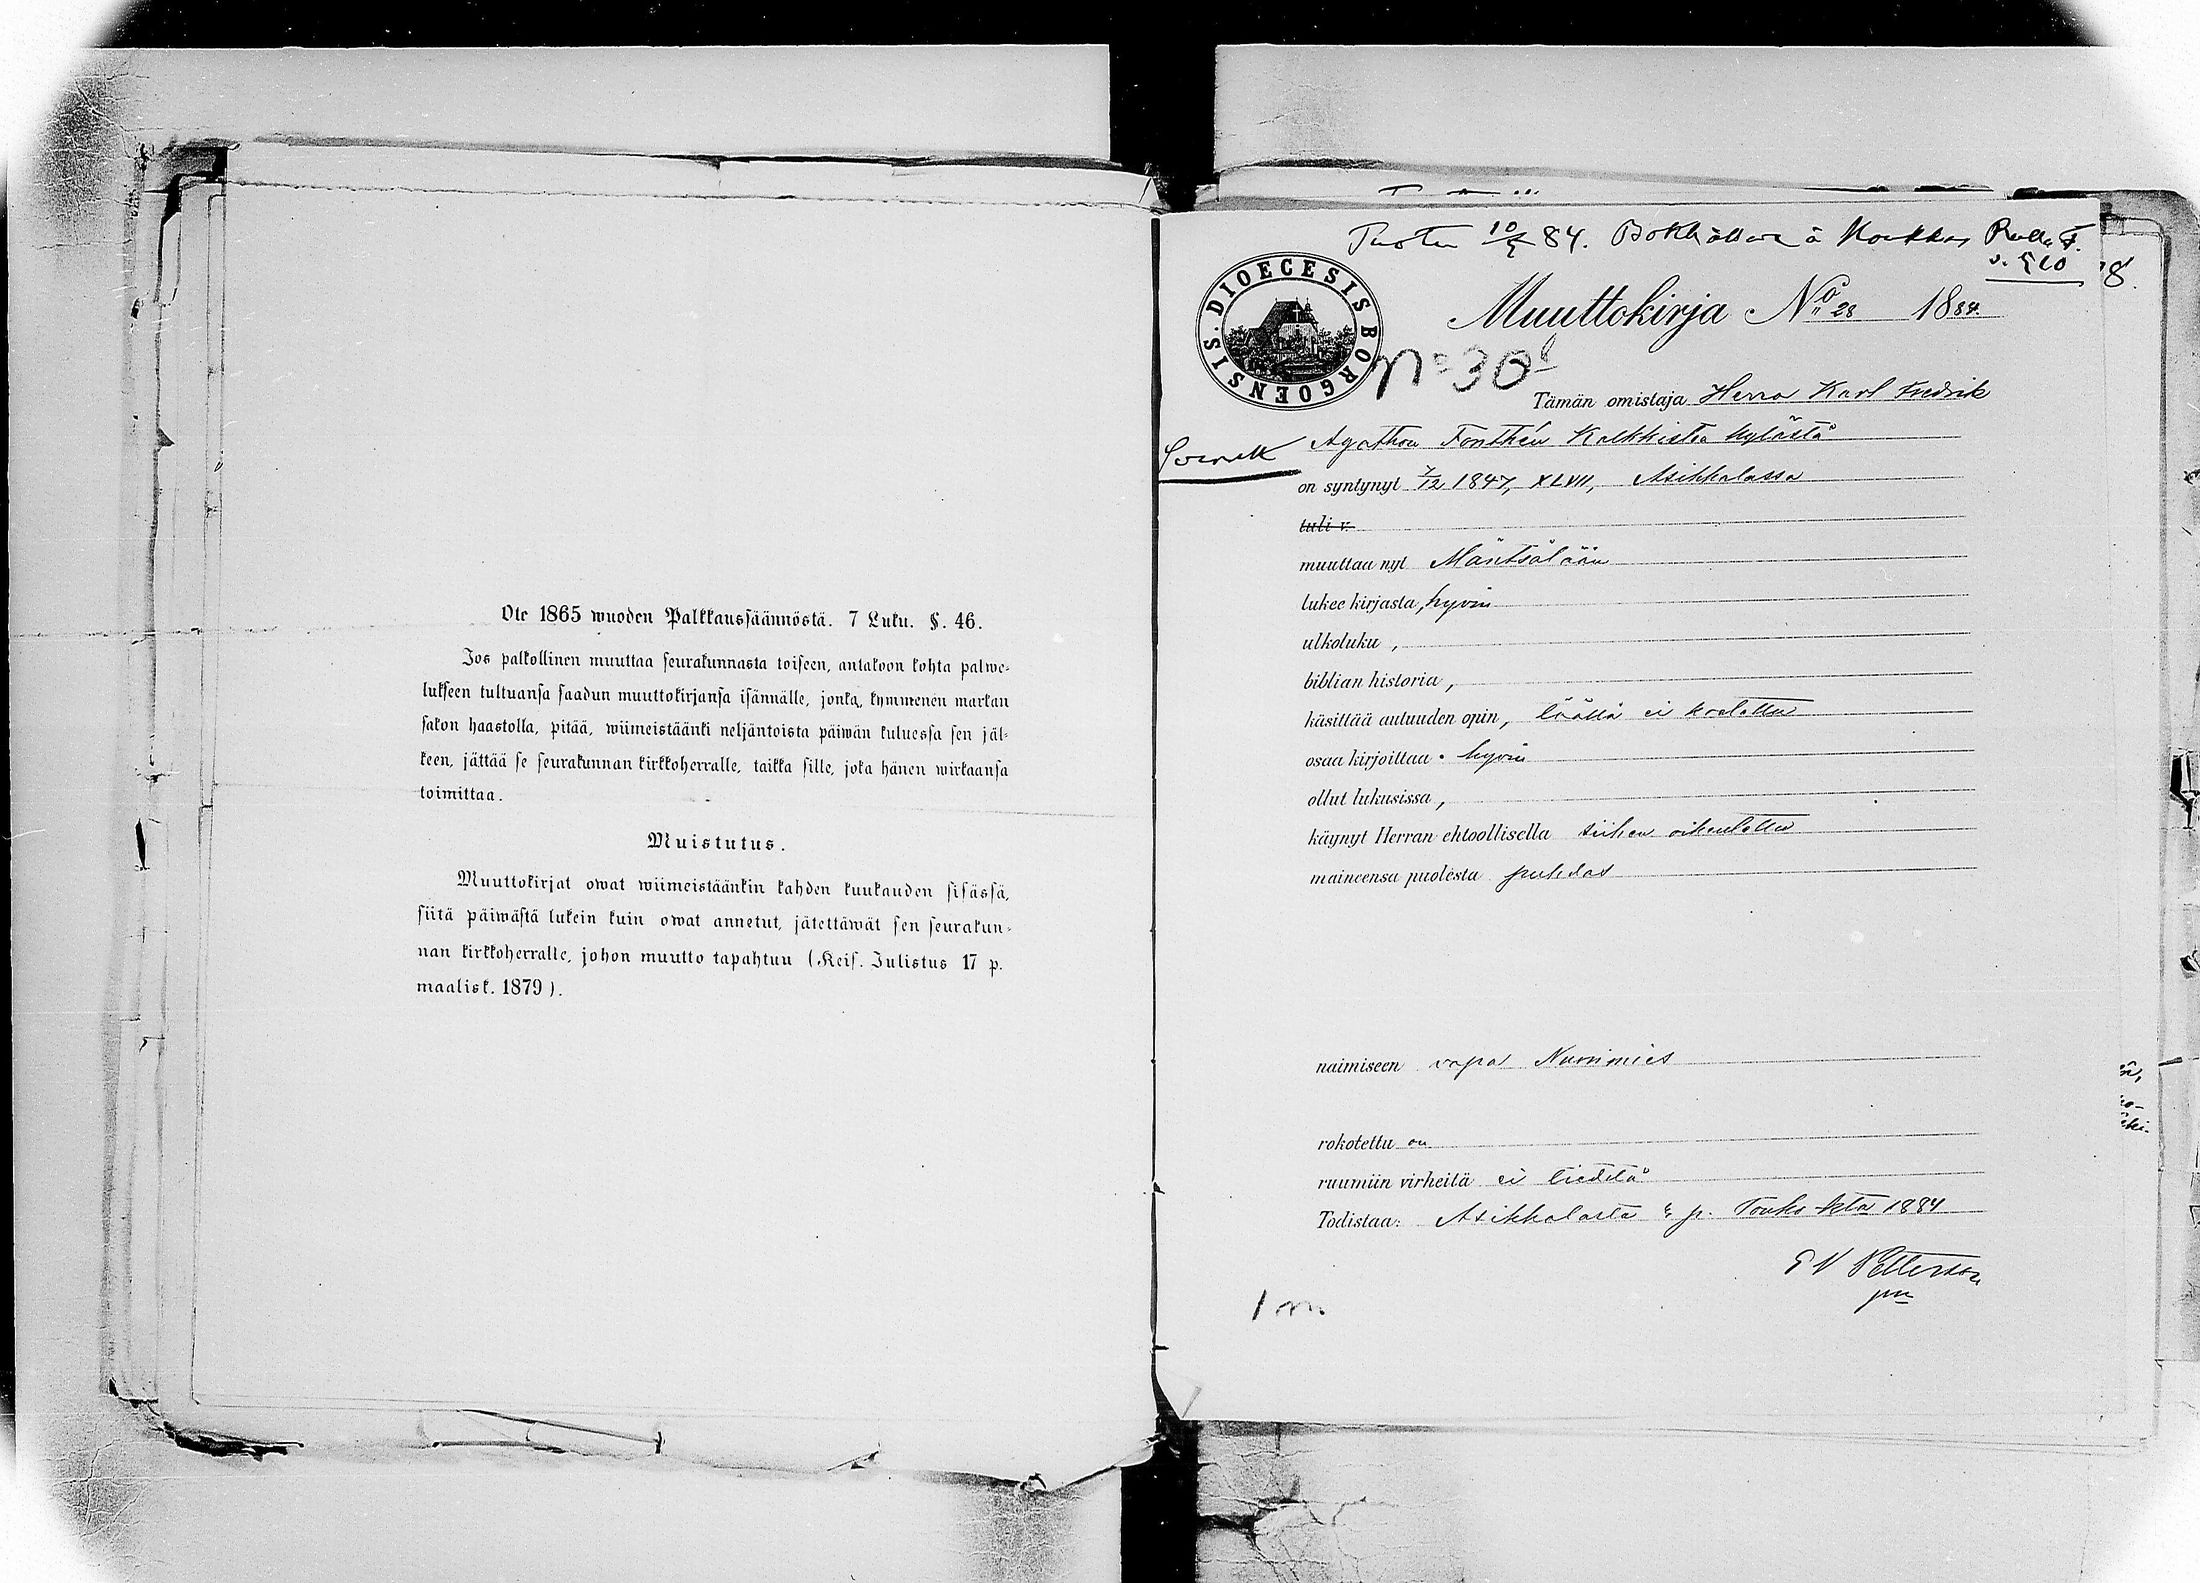 Ote 1865 wuoden Palkkaussäännöstä. 7 Luku. §. 46.
Jos palkollinen muuttaa seurakunnasta toiseen, antakoon kohta palwe-
lukseen tultuansa saadun muuttokirjansa isännälle, jonka, kymmenen markan
sakon haastolla, pitää, wiimeistäänki neljäntoista päiwän kuluessa sen jäl-
keen, jättää se seurakunnan kirkkoherralle, taikka sille, joka hänen wirkaansa
toimittaa.
Muistutus.
Muuttokirjat owat wiimeistäänkin kahden kuukauden sisässä,
siitä päiwästä lukein kuin owat annetut, jätettäwät sen seurakun-
nan kirkkoherralle, johon muutto tapahtuu (Keis. Julistus 17 p.
maalisk. 1879).
84. Bokhållare å
s. 510
DIOECESIS BORGOENSIS.
Muuttokirja No 28 1884.
No 30
Tämän omistaja Herra Karl Fredrik
Agathon Forthén Kalkkisten kylästä
on syntynyt 7/12 1847, XLVII, Asikkalassa
tuli v.
muuttaa nyt Mäntsälään
lukee kirjasta, hyvin
ulkoluku,
biblian historia,
käsittää autuuden opin, täällä ei koeteltu
osaa kirjoittaa hyvin
ollut lukusissa,
käynyt Herran ehtoollisella siihen oikeutettu
maineensa puolesta puhdas
naimiseen vapa Nuorimies
rokotettu on
ruumiin virheitä ei tiedetä
Todistaa: Asikkalasta p. Touko kta 1884
Petterson
1 m.